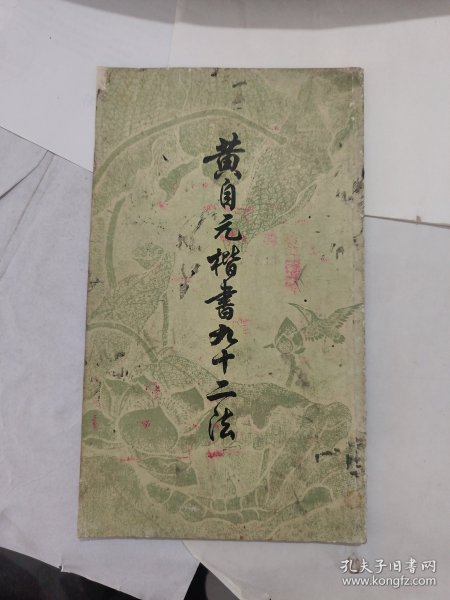 黄自元楷书九十二法
孔夫子旧书网
www.kongfz.com